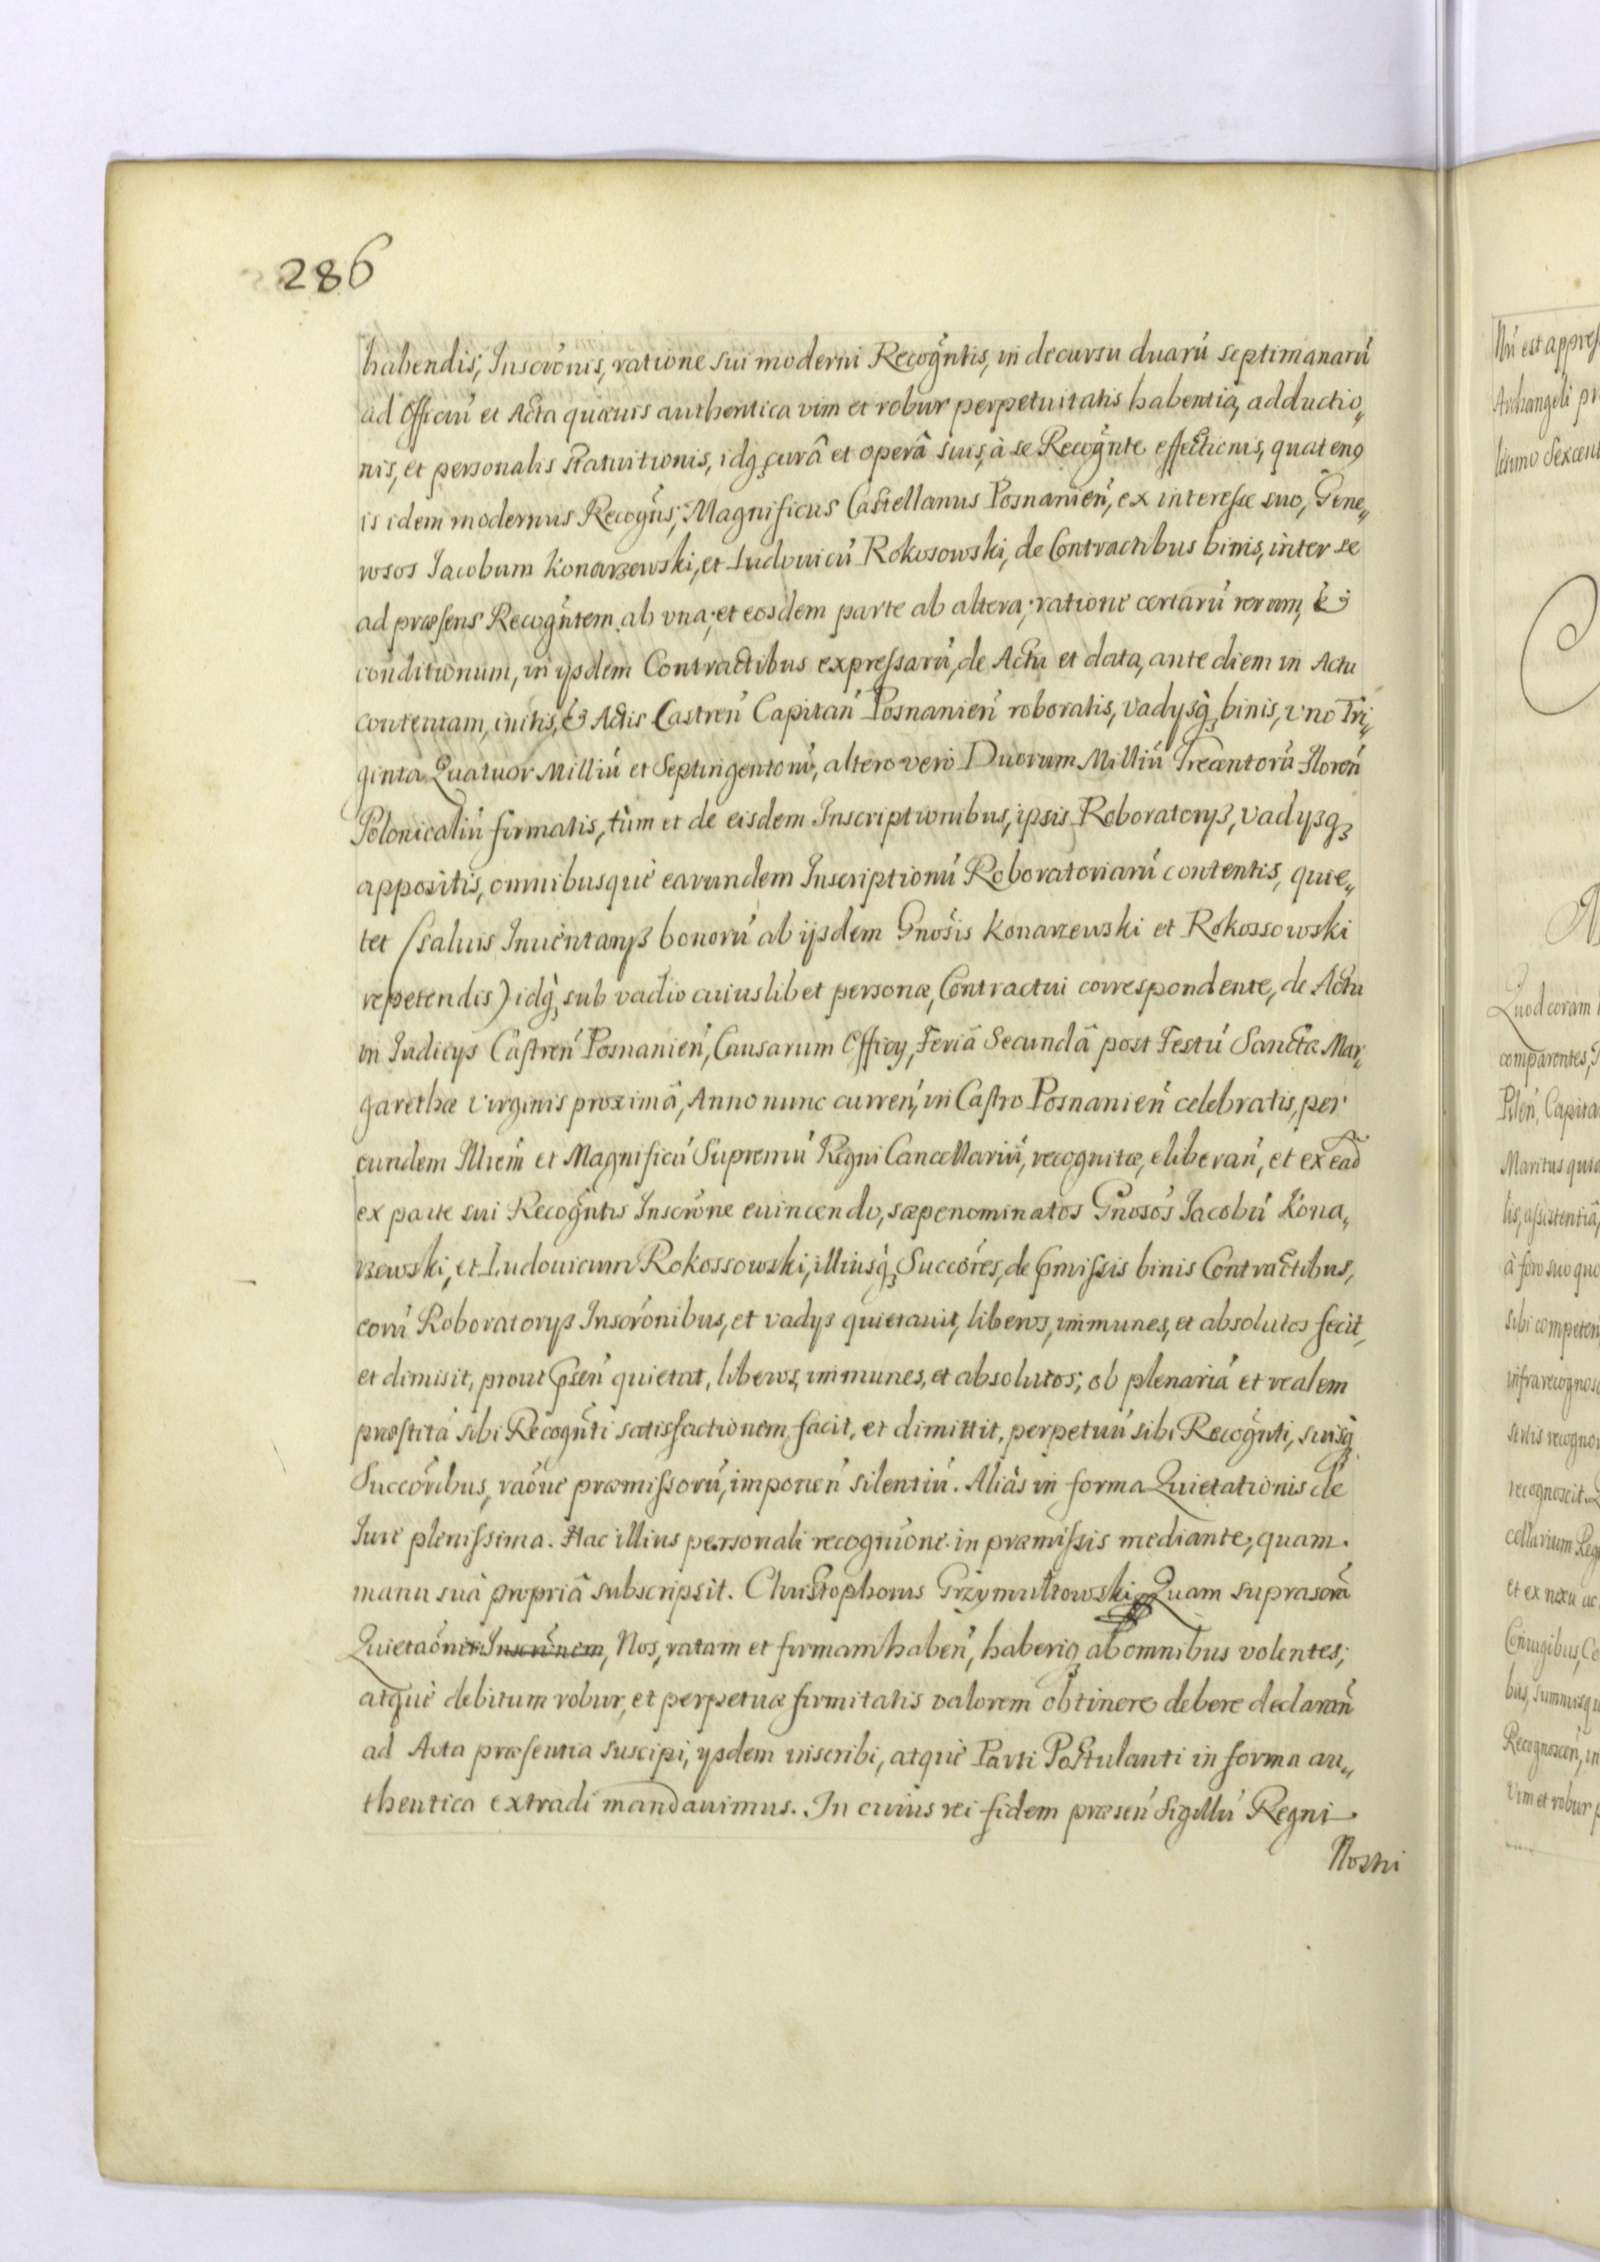 286
habendis, Inscrõnis, ratione sui moderni Recogñtis, in decursu duarũ septimanarũ
ad Officiũ et Acta quæuis authentica vim et robur perpetuitatis habentia, adductio„
nis, et personalis statuitionis, idq; curâ et operâ suis, à se Recogñte effectionis, quatenꝯ
is idem modernus Recogñs, Magnificus Castellanus Posnanieñ, ex interesse suo, Gene„
rosos Jacobum Konarzewski, et Ludouicũ Rokosowski, de Contractibus binis, inter se
ad præsens Recogñtem ab vna, et eosdem parte ab altera, ratione certarũ rerum, &
conditionum, in ijsdem Contractibus expressarũ, de Actu et data, ante diem in Actu
contentam, initis, & Actis Castreñ Capitañ Posnanieñ roboratis, vadijsq; binis, vno Tri„
ginta Quatuor Milliũ et Septingentorũ, altero vero Duorum Milliũ Trecentorũ floreñ
Polonicaliũ firmatis, tùm et de eisdem Inscriptionibus, ipsis Roboratorijs, vadijsq;
appositis, omnibusquè earundem Inscriptionũ Roboratoriarũ contentis, quie„
tet (saluis Inuentarijs bonorũ ab ijsdem Gnõsis Konarzewski et Rokossowski
repetendis) idq; sub vadio cuiuslibet personæ, Contractui correspondente, de Actu
in Iudicijs Castreñ Posnanieñ, Causarum Officij, Feriâ Secundâ post Festũ Sanctæ Mar„
garethæ Virginis proximâ, Anno nunc curreñ, in Castro Posnanieñ celebratis, per
eundem Illrem̃ et Magnificũ Supremũ Regni Cancellariũ, recognitæ, eliberañ, et ex ead̃
ex parte sui Recogñtis Inscrõne euincendo, sæpenominatos Gnõsos Jacobũ Kona„
rzewski, et Ludouicum Rokossowski, illiusq; Succõres, de p̃missis binis Contractibus,
eorũ Roboratorijs Inscrõnibus, et vadijs quietauit, liberos, immunes, et absolutos fecit,
et dimisit, prout p̃señ quietat, liberos, immunes, et absolutos, ob plenariã et realem
præstitã sibi Recogñti satisfactionem, facit, et dimittit, perpetuũ sibi Recogñti, suisq;
Succõribus, raõne præmissorũ, imponeñ silentiũ. Aliàs in forma Quietationis de
Iure plenissima. Hac illius personali recognitione in præmissis mediante, quam
manu suâ propriâ subscripsit. Christophorus Grzymułtowski. Quam suprascrã
Quietaõnis Inscrõnem, Nos, ratam et firmam habeñ, haberiq; ab omnibus volentes;
atquè debitum robur, et perpetuæ firmitatis valorem obtinere debere declarañ
ad Acta præsentia suscipi, ijsdem inscribi, atquè Parti Postulanti in forma au„
thentica extradi mandauimus. In cuius rei fidem præseñ Sigillũ Regni
Nostri